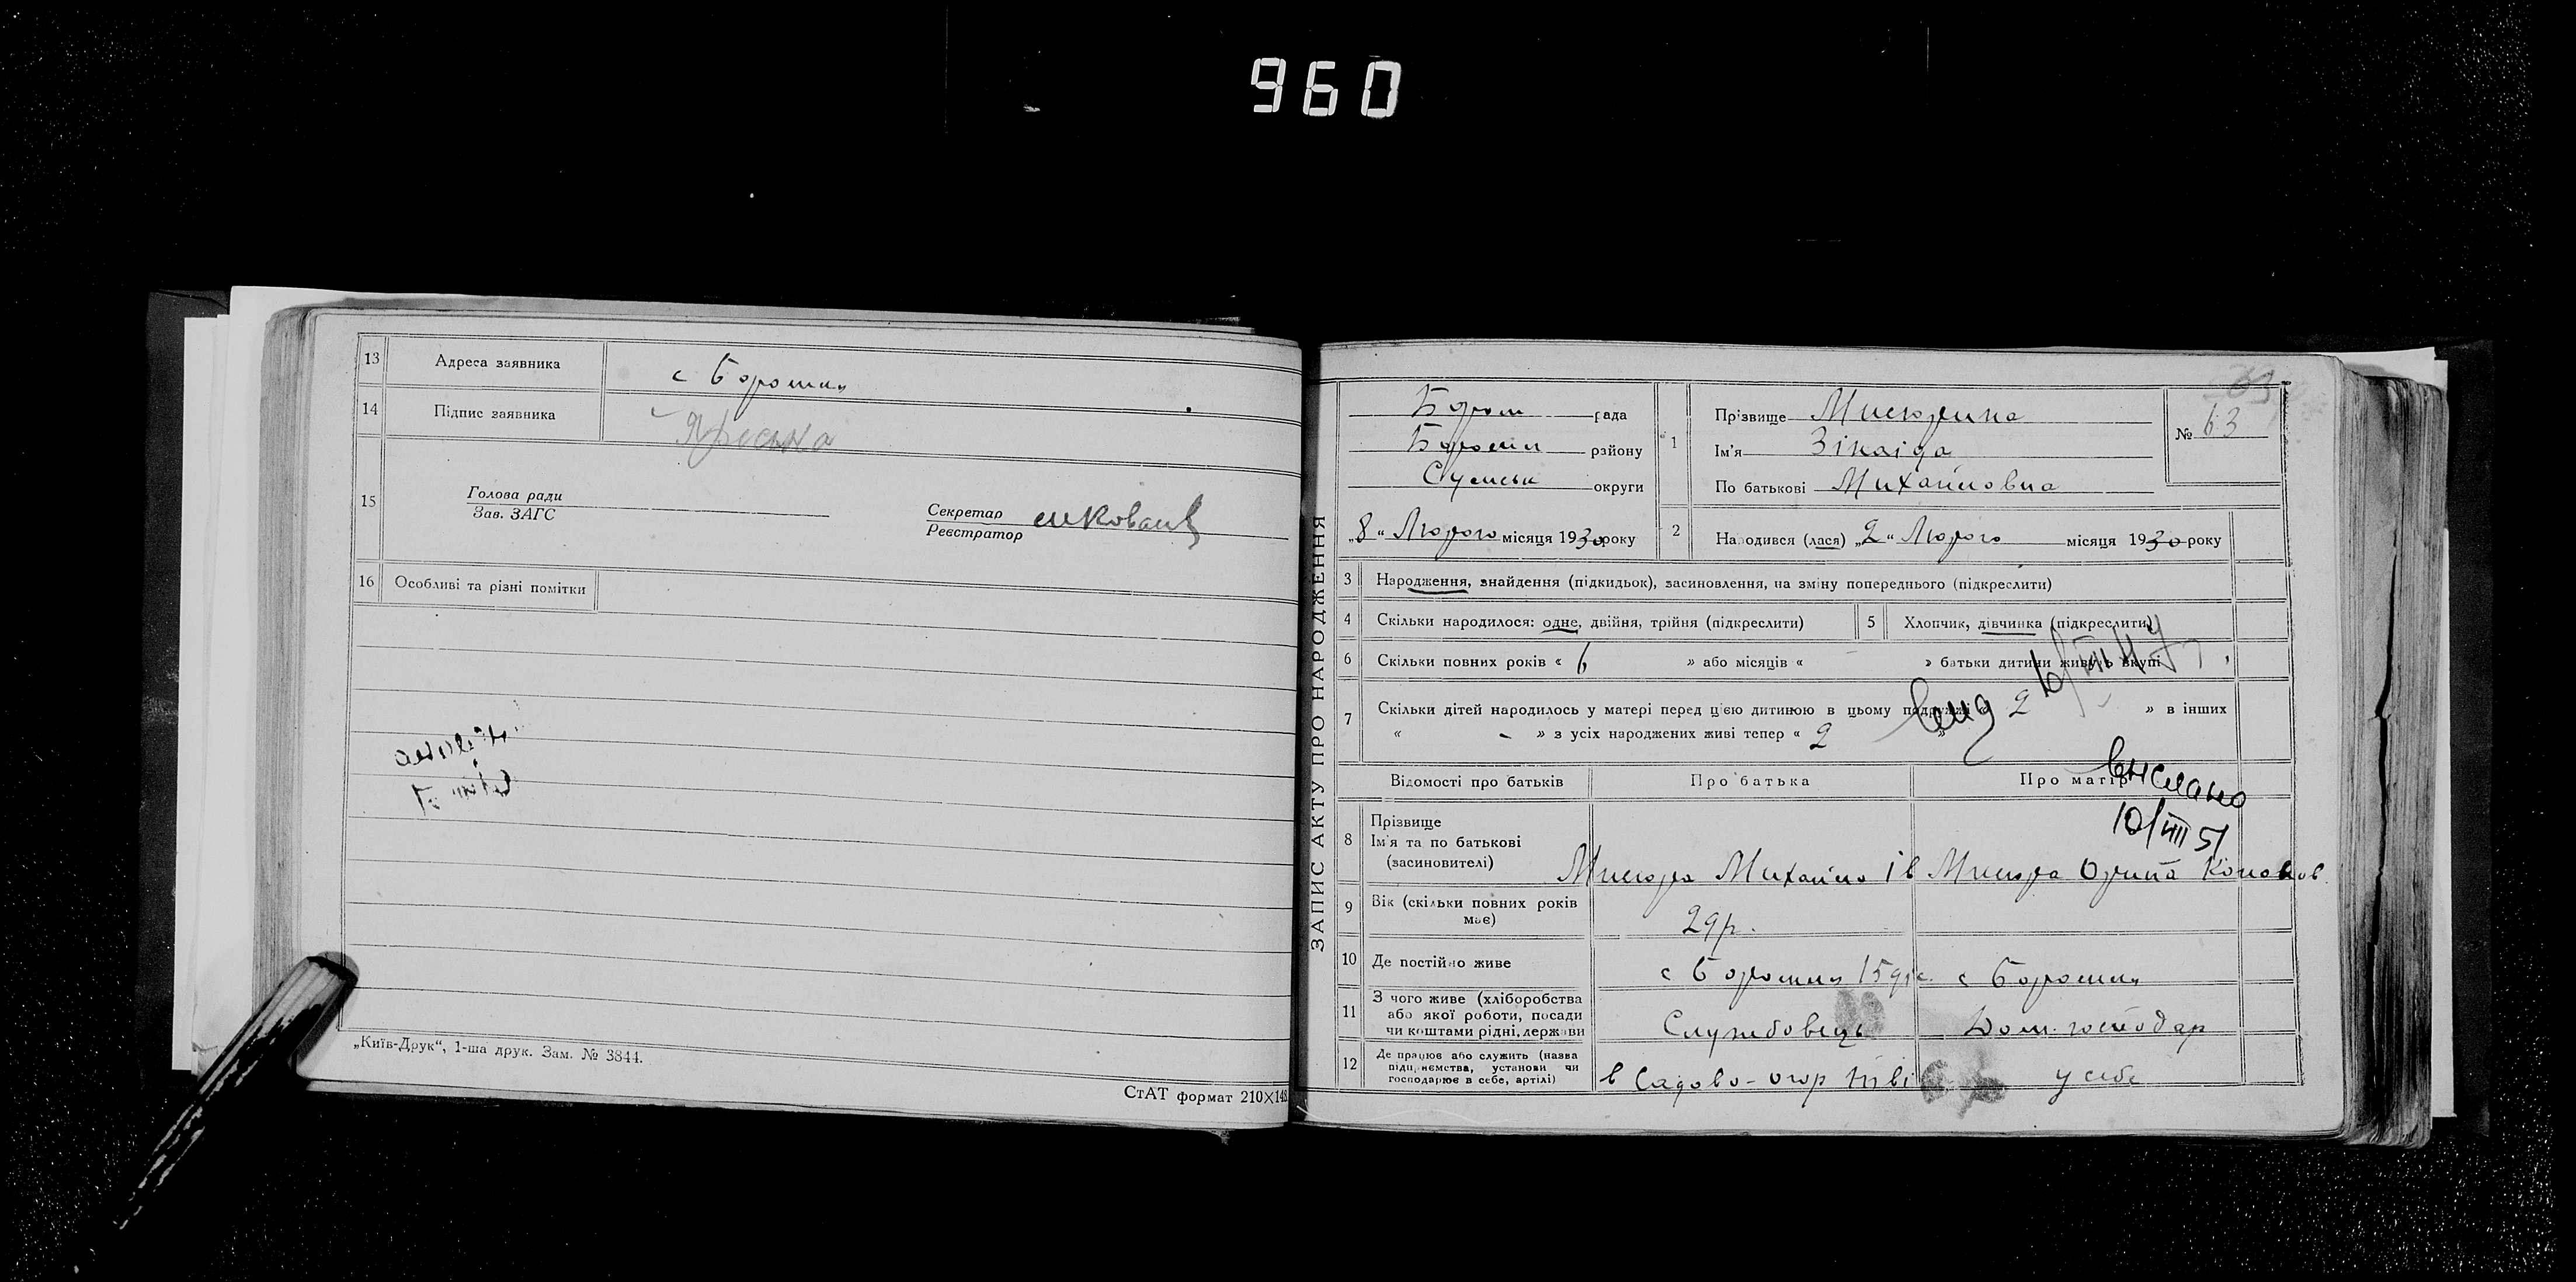 960
13 Адреса заявника с Боромля
14 Підпис заявника
15 Голова ради
Зав. ЗАГС
Секретар
Реєстратор
16 Особливі та різні помітки
„Київ-Друк“, 1-ша друк. Зам. № 3844.
СтАТ формат 210×148
ЗАПИС АКТУ ПРО НАРОДЖЕННЯ
Боромл рада
Боромл району
Сумськ округи
„8“ Лютого місяця 1930 року
1 Прізвище
Ім'я Зінаіда
По батькові Михайловна
№ 63
2 Народився (лася) „2“ Лютого місяця 1930 року
3 Народження, знайдення (підкидьок), засиновлення, на зміну попереднього (підкреслити)
4 Скільки народилося: одне, двійня, трійня (підкреслити)
5 Хлопчик, дівчинка (підкреслити)
6 Скільки повних років « 6 » або місяців « – » батьки дитини живуть вкупі
7 Скільки дітей народилось у матері перед цією дитиною в цьому подружжі « 2 » в інших
« – » з усіх народжених живі тепер « 2 »
Відомості про батьків Про батька Про матір
вислано
10/VIII 51
8 Прізвище
Ім'я та по батькові
(засиновителі)
Михайло Ів
9 Вік (скільки повних років
має)
29 р.
10 Де постійно живе с Боромля с Боромля
11 З чого живе (хліборобства
або якої роботи, посади
чи коштами рідні, держави
Службовець Дом. господар
12 Де працює або служить (назва
підприємства, установи чи
господарює в себе, артілі)
в Садово-огор у себе